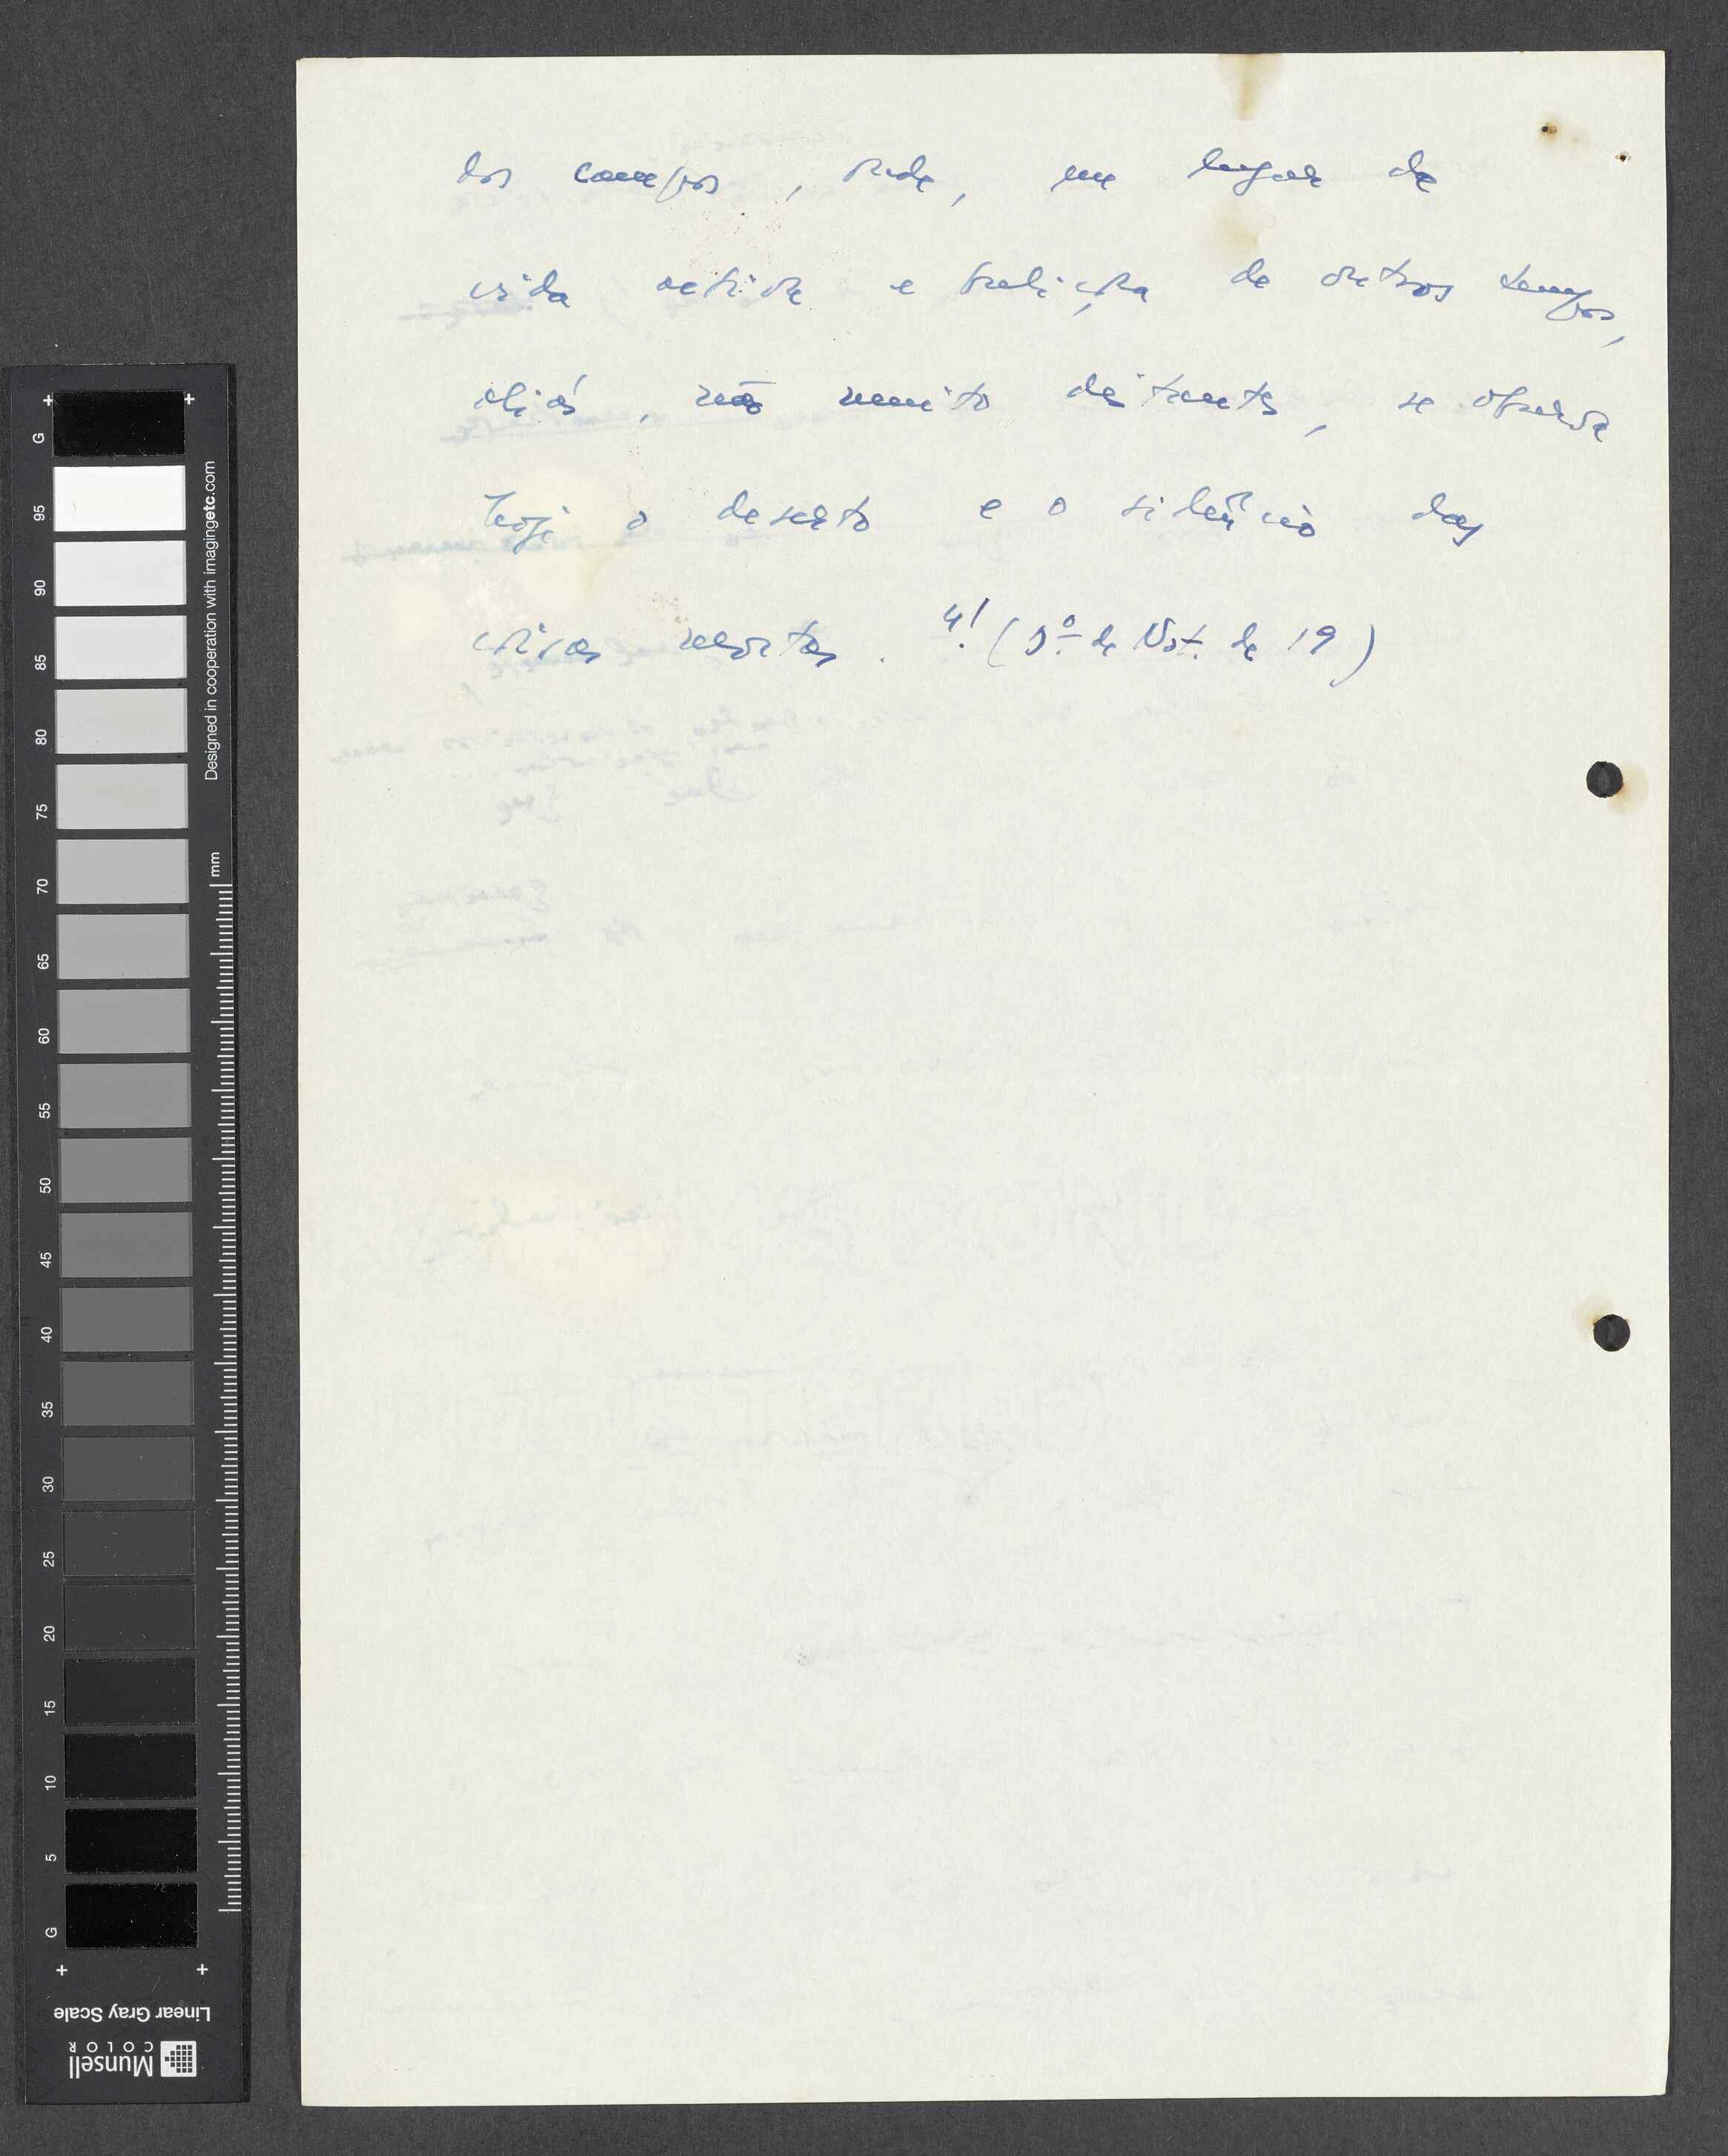 dos campos, onde, em lugar da
vida activa e buliçosa de outros tempos,
aliás, não muito distantes, se observa
hoje o deserto e o silêncio das
coisas mortas. 4! (D.º de Not. de 19)
G
95
90
85
80
75
70
65
60
55
50
45
40
35
30
25
20
15
10
5
G
Designed in cooperation with imagingetc.com
mm
Linear Gray Scale
Munsell
COLOR